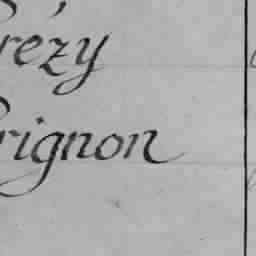 rézy
rignon